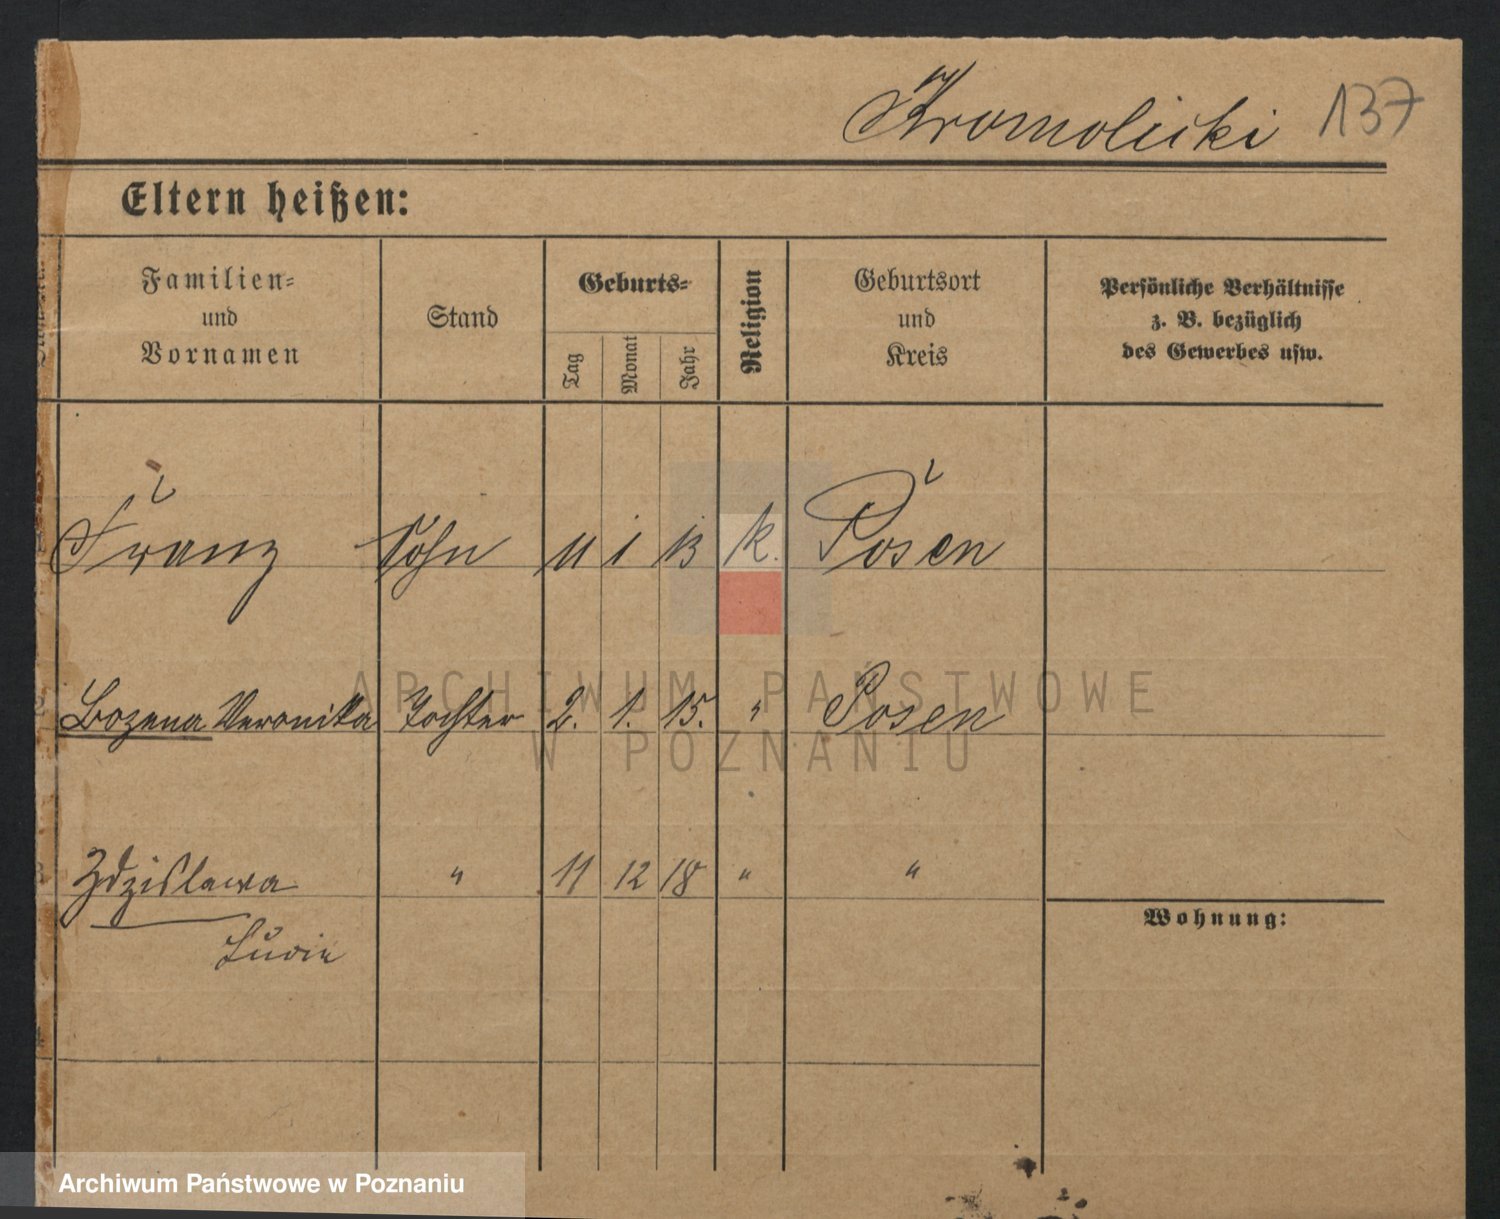 Kromolicki 137
Eltern heißen:
Familien=
und
Vornamen
Stand
Geburts=
Tag
Monat
Jahr
Religion
Geburtsort
und
Kreis
Persönliche Verhältnisse
z. B. bezüglich
des Gewerbes usw.
Franz Sohn 11 1 13 k. Posen
Bozena Veronika Tochter 2. 1. 15. " Posen
Zdzislawa " 11 12 18 " "
Wohnung:
ARCHIWUM PAŃSTWOWE
W POZNANIU
Archiwum Państwowe w Poznaniu